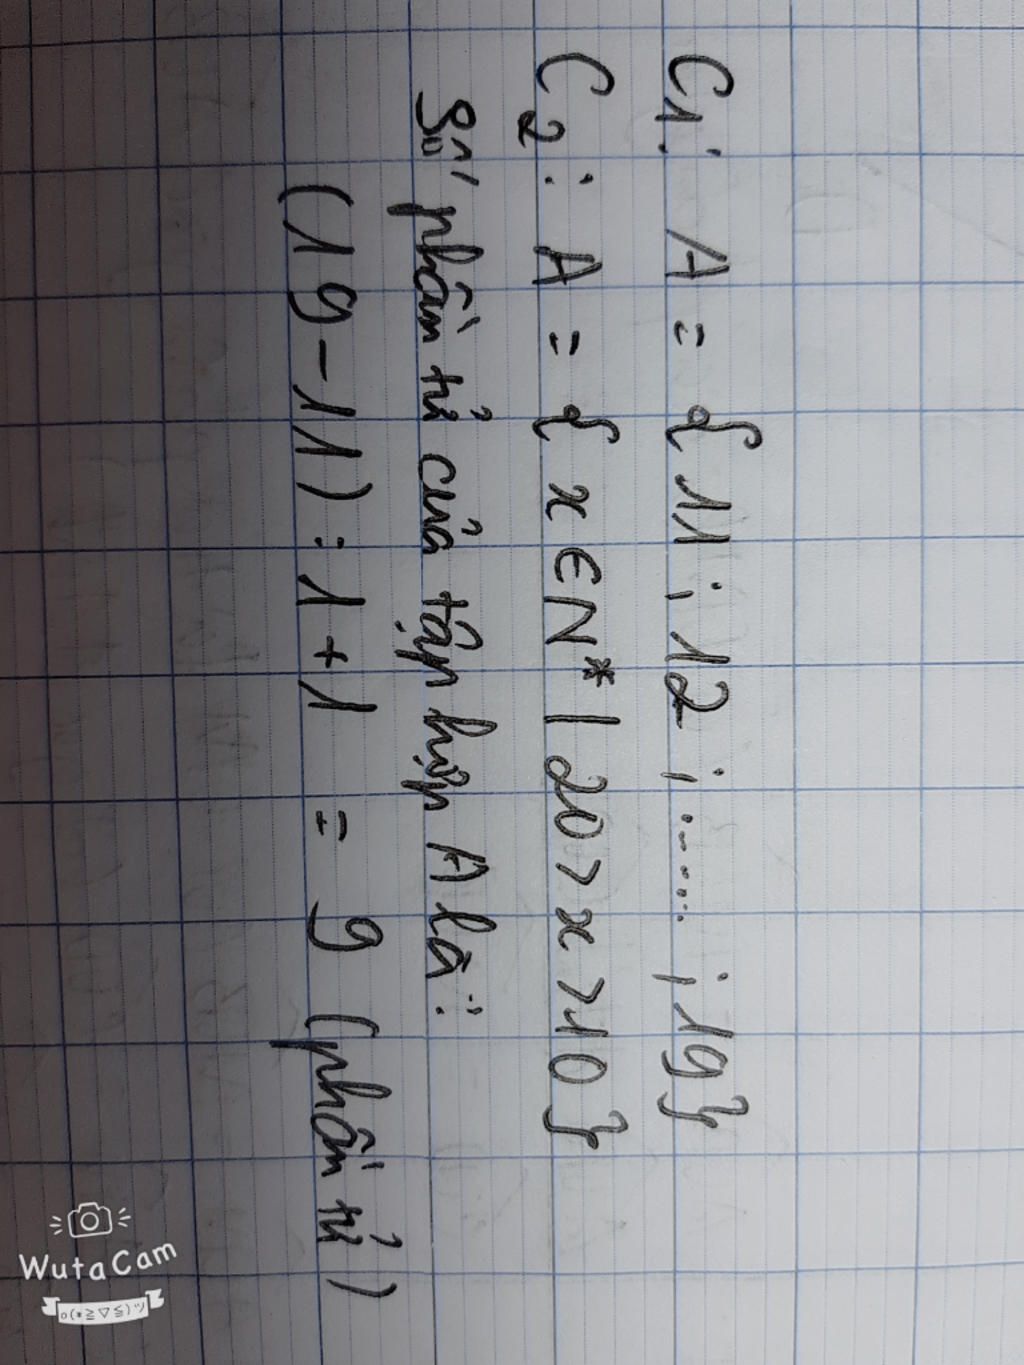 C1: A = { 11 ; 12 ; ...... ; 19}
C2: A = { x ∈ N* | 20 > x > 10 }
Số phần tử của tập hợp A là:
(19 - 11) : 1 + 1 = 9 (phần tử)
WutaCam
o(*≧▽≦)ツ